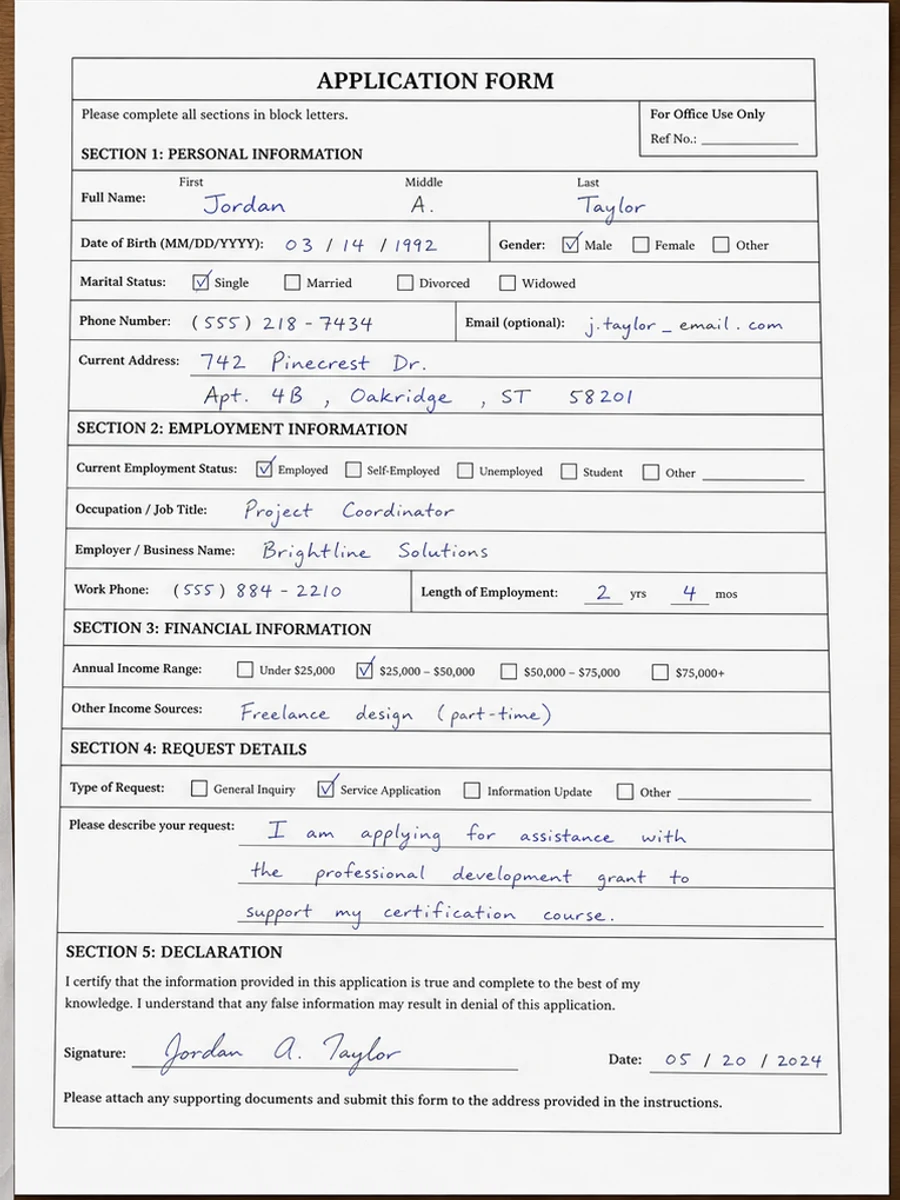 APPLICATION FORM
Please complete all sections in block letters.
For Office Use Only
Ref No.:
SECTION 1: PERSONAL INFORMATION
First Middle Last
Full Name: Jordan A. Taylor
Date of Birth (MM/DD/YYYY): 03 / 14 / 1992 Gender: Male Female Other
Marital Status: Single Married Divorced Widowed
Phone Number: (555) 218 - 7434 Email (optional): j.taylor _ email . com
Current Address: 742 Pinecrest Dr.
Apt. 4B , Oakridge , ST 58201
SECTION 2: EMPLOYMENT INFORMATION
Current Employment Status: Employed Self-Employed Unemployed Student Other
Occupation / Job Title: Project Coordinator
Employer / Business Name: Brightline Solutions
Work Phone: (555) 884 - 2210 Length of Employment: 2 yrs 4 mos
SECTION 3: FINANCIAL INFORMATION
Annual Income Range: Under $25,000 $25,000 – $50,000 $50,000 – $75,000 $75,000+
Other Income Sources: Freelance design (part-time)
SECTION 4: REQUEST DETAILS
Type of Request: General Inquiry Service Application Information Update Other
Please describe your request: I am applying for assistance with
the professional development grant to
support my certification course.
SECTION 5: DECLARATION
I certify that the information provided in this application is true and complete to the best of my
knowledge. I understand that any false information may result in denial of this application.
Signature: Jordan A. Taylor Date: 05 / 20 / 2024
Please attach any supporting documents and submit this form to the address provided in the instructions.